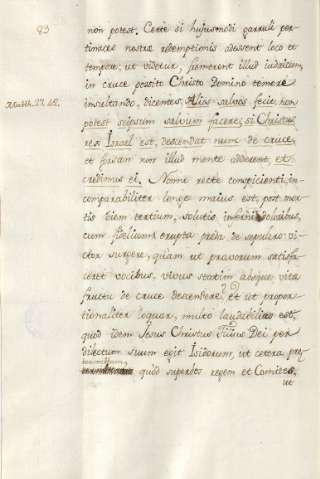 93
non potest. Certe si hujusmodi garruli per-
tinaces nostræ redemptionis adessent loco et
tempori, ut videtur, firmarent illud iudicium,
in cruce posito Christo Domino temere
Matth. 27. 42. insultando, dicentes, Alios salvos fecit, non
potest seipsum salvum facere; si Christus
rex Israel est, descendat nunc de cruce,
et forsan non illud mente adderent, et
credimus ei. Nonne recte conspicienti, in-
comparabiliter longe maius est, post mor-
tis diem tertium, solutis inferni doloribus,
cum fidelium erupta præda de sepulcro vi-
ctor surgere, quam ut pravorum satisfa-
ceret vocibus, vivus statim absque vitæ
fructu de cruce descendere? et ut propor-
tionaliter loquar, multo laudabilius est,
quod idem Jesus Christus Filius Dei per
dilectum suum egit Isidorum, ut cetera præ-
quid superdts regem et Comites,
ut